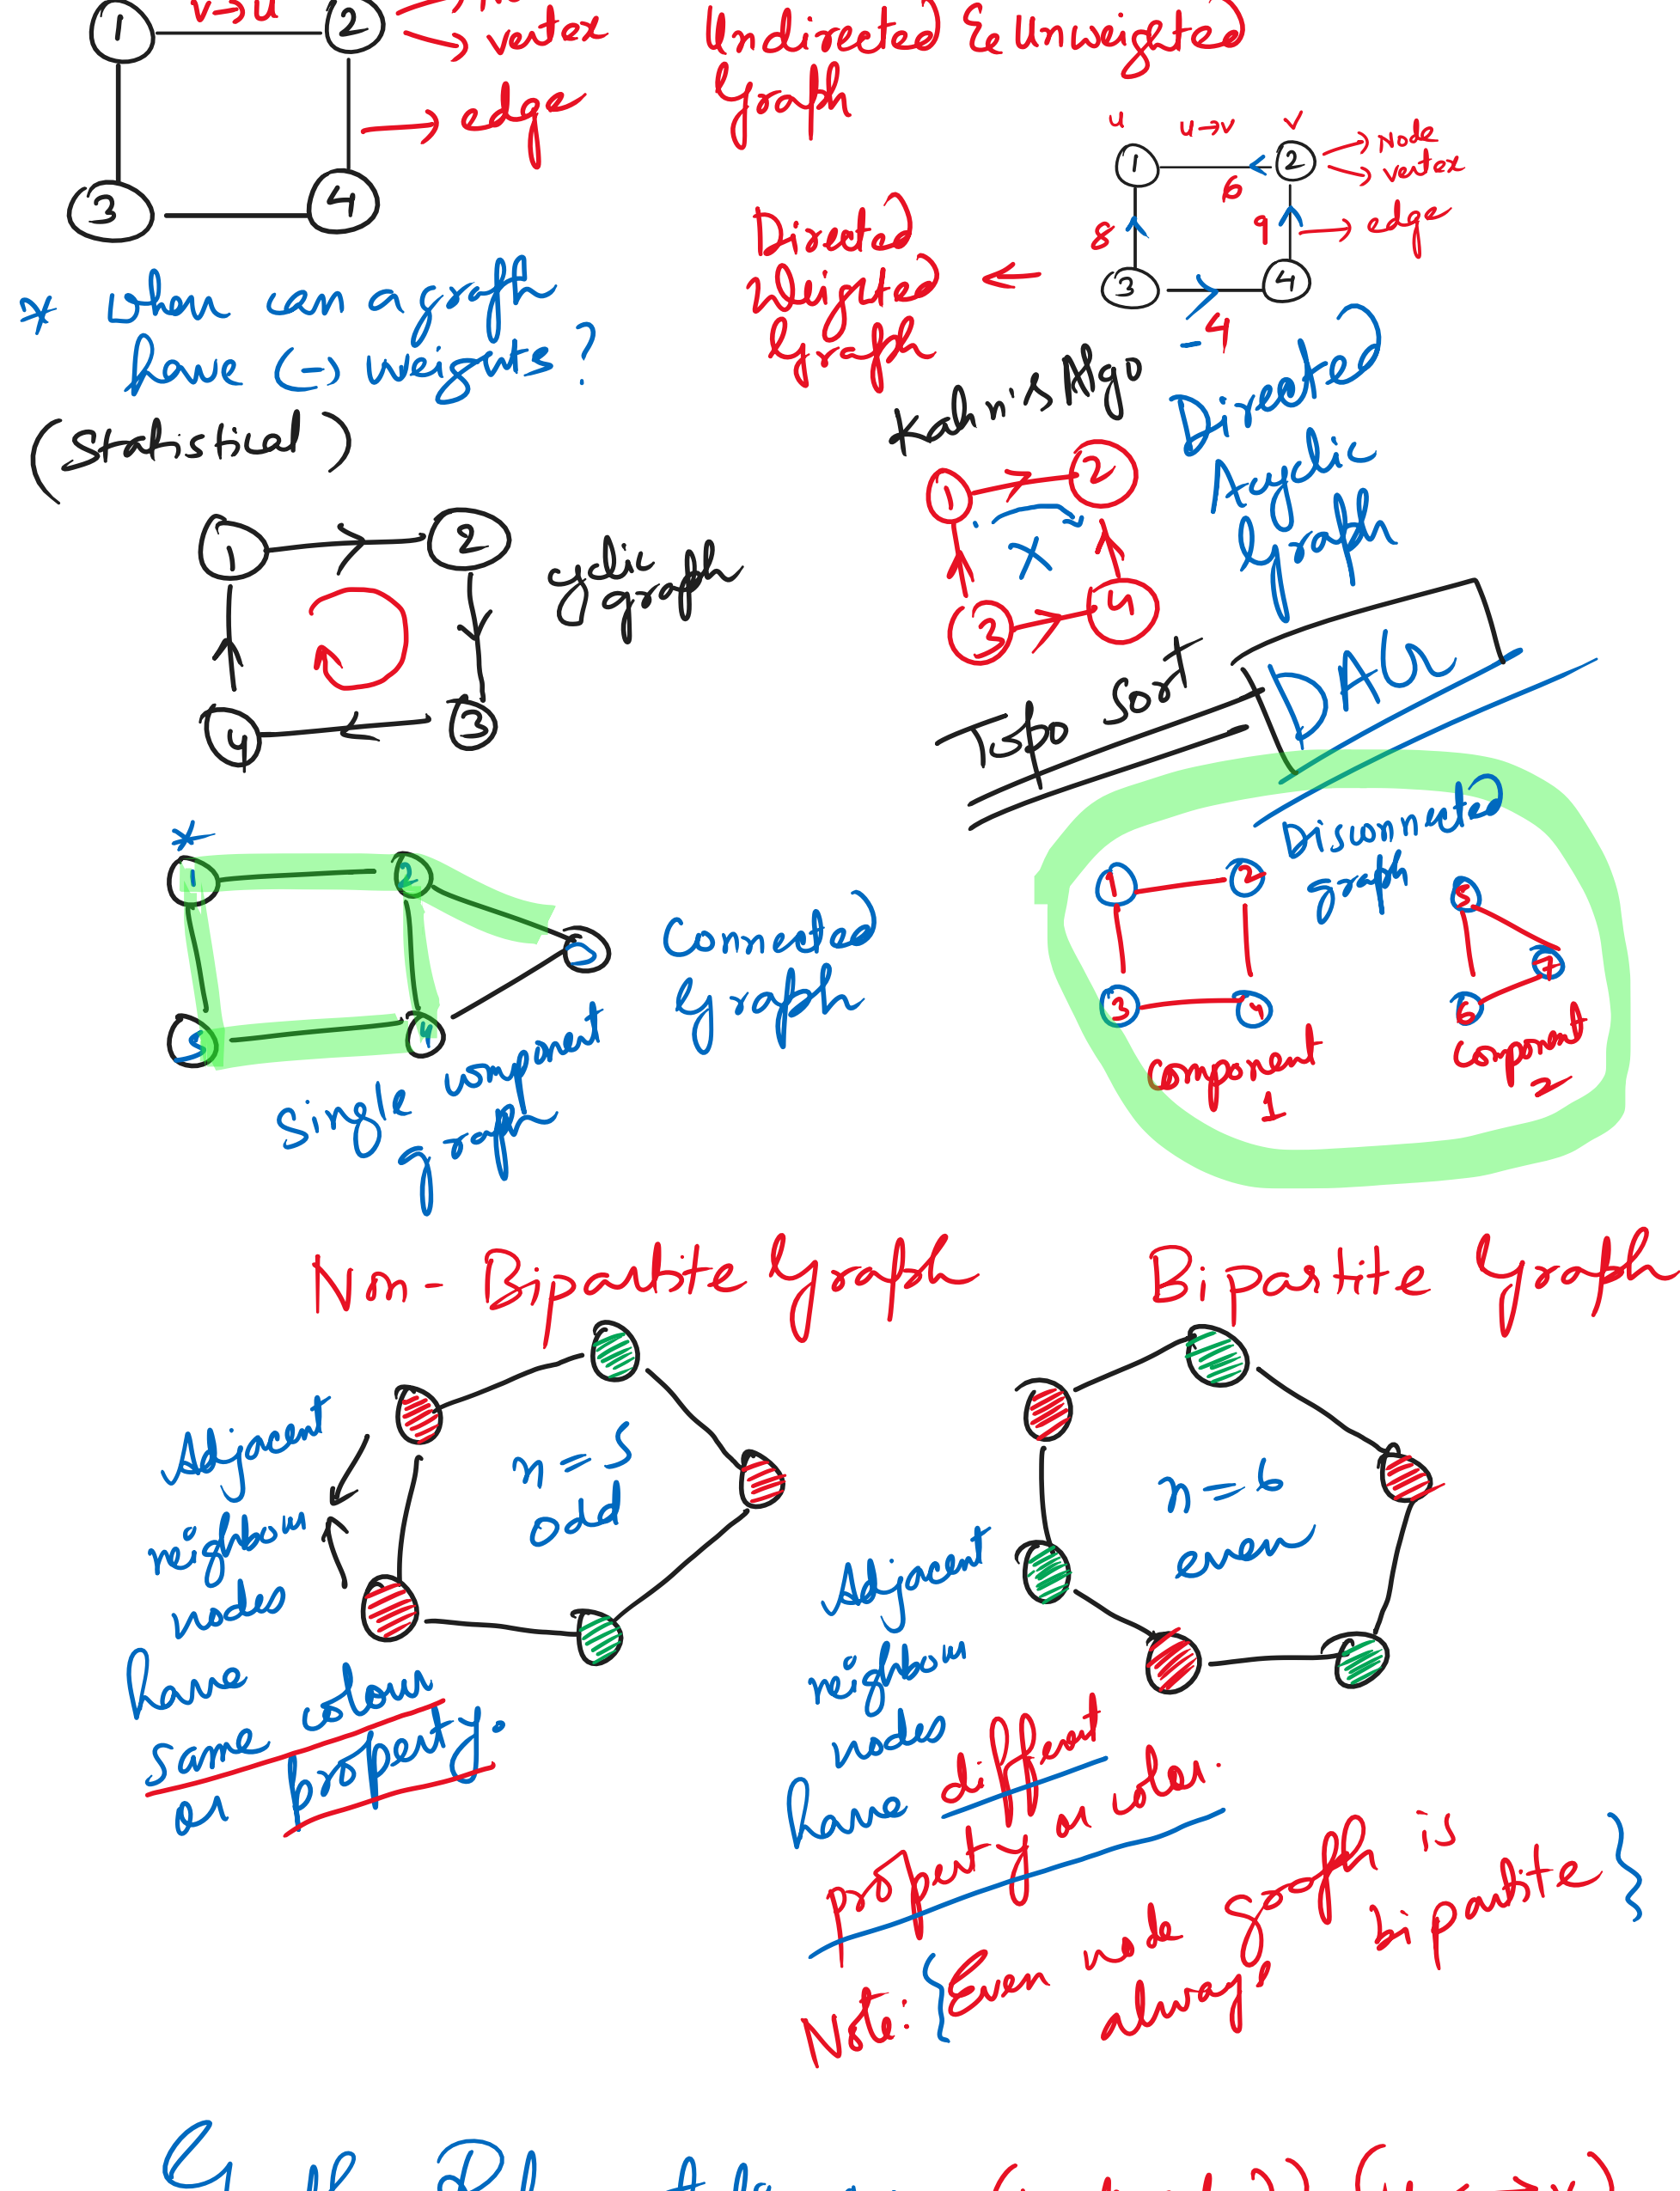 v→u
1
2
vertex
edge
3
4
Undirected & Unweighted
Graph
u
u→v
v
1
2
Node
vertex
6
8
9
edge
3
4
-4
Directed
Weighted
Graph
* when can a graph
have (-) weights?
(Statistical)
Kahn's Algo
Directed
Acyclic
Graph
1
2
3
4
X
1
2
3
4
cyclic
graph
Topo Sort
DAG
*
1
2
3
4
5
Connected
Graph
Single component
graph
Disconnected
graph
1
2
3
4
5
6
7
Component
1
Component
2
Non-Bipartite Graph
n=5
odd
Adjacent
neighbour
nodes
have
same colour
or property.
Bipartite Graph
n=6
even
Adjacent
neighbour
nodes
have different
property or color.
Note: {Even node graph is
always bipartite}